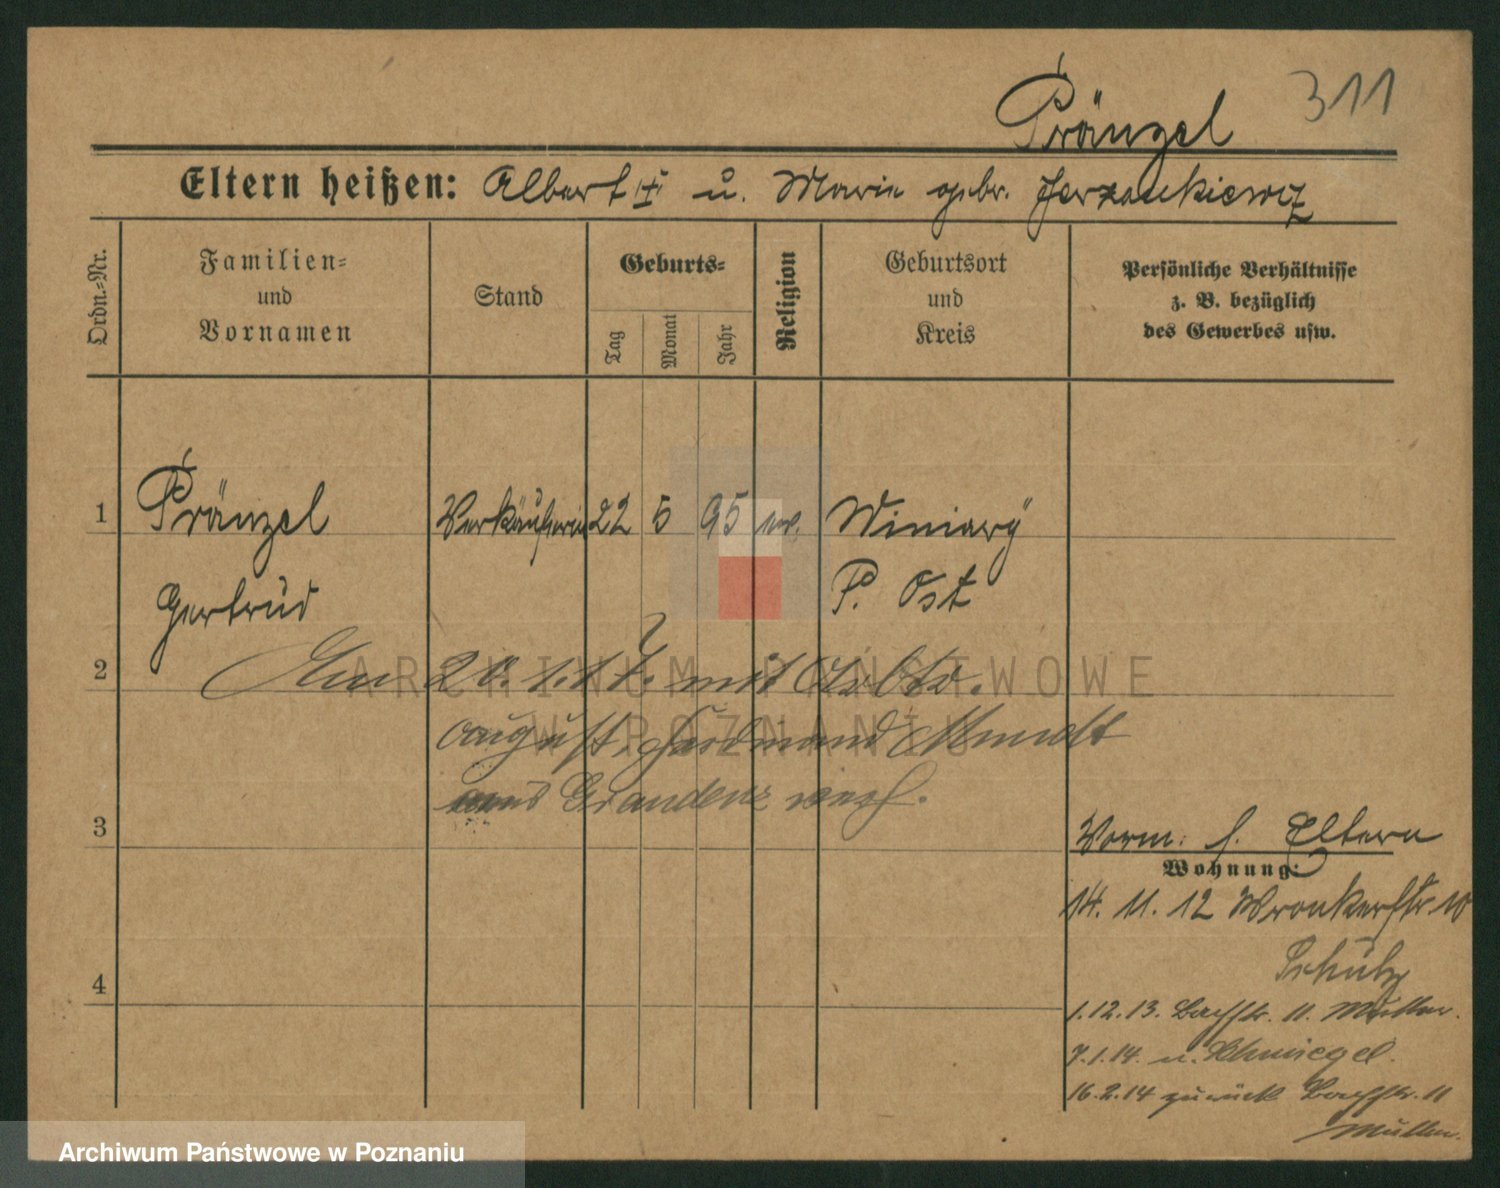 311
Pränzel
Eltern heißen: Albert † u. Marie gebr. Jerzankiewicz
Ordn.-Nr.
Familien-
und
Vornamen
Stand
Geburts-
Tag
Monat
Jahr
Religion
Geburtsort
und
Kreis
Persönliche Verhältnisse
z. B. bezüglich
des Gewerbes usw.
1 Pränzel Verkäuferin 22 5 95 ev. Winiary
Gertrud P. Ost
2 Am 20.1.17. mit
August Ferdinand Mundt
aus Graudenz verh.
3
Vorm. s. Eltern
Wohnung:
14. 11. 12 Wronkerstr. 10
Schulz
4
1.12.13. Bachstr. 11. Müller.
7.1.14. n. Schmiegel.
16.2.14 zurück Bachstr. 11
Müller.
ARCHIWUM PAŃSTWOWE
W POZNANIU
Archiwum Państwowe w Poznaniu